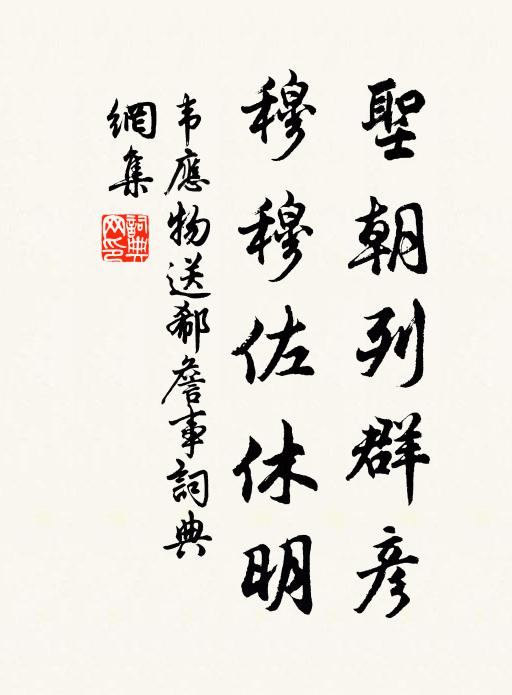 聖朝列群彦
穆穆佐休明
韦應物送郗詹事詞典
網集
詞典
网印